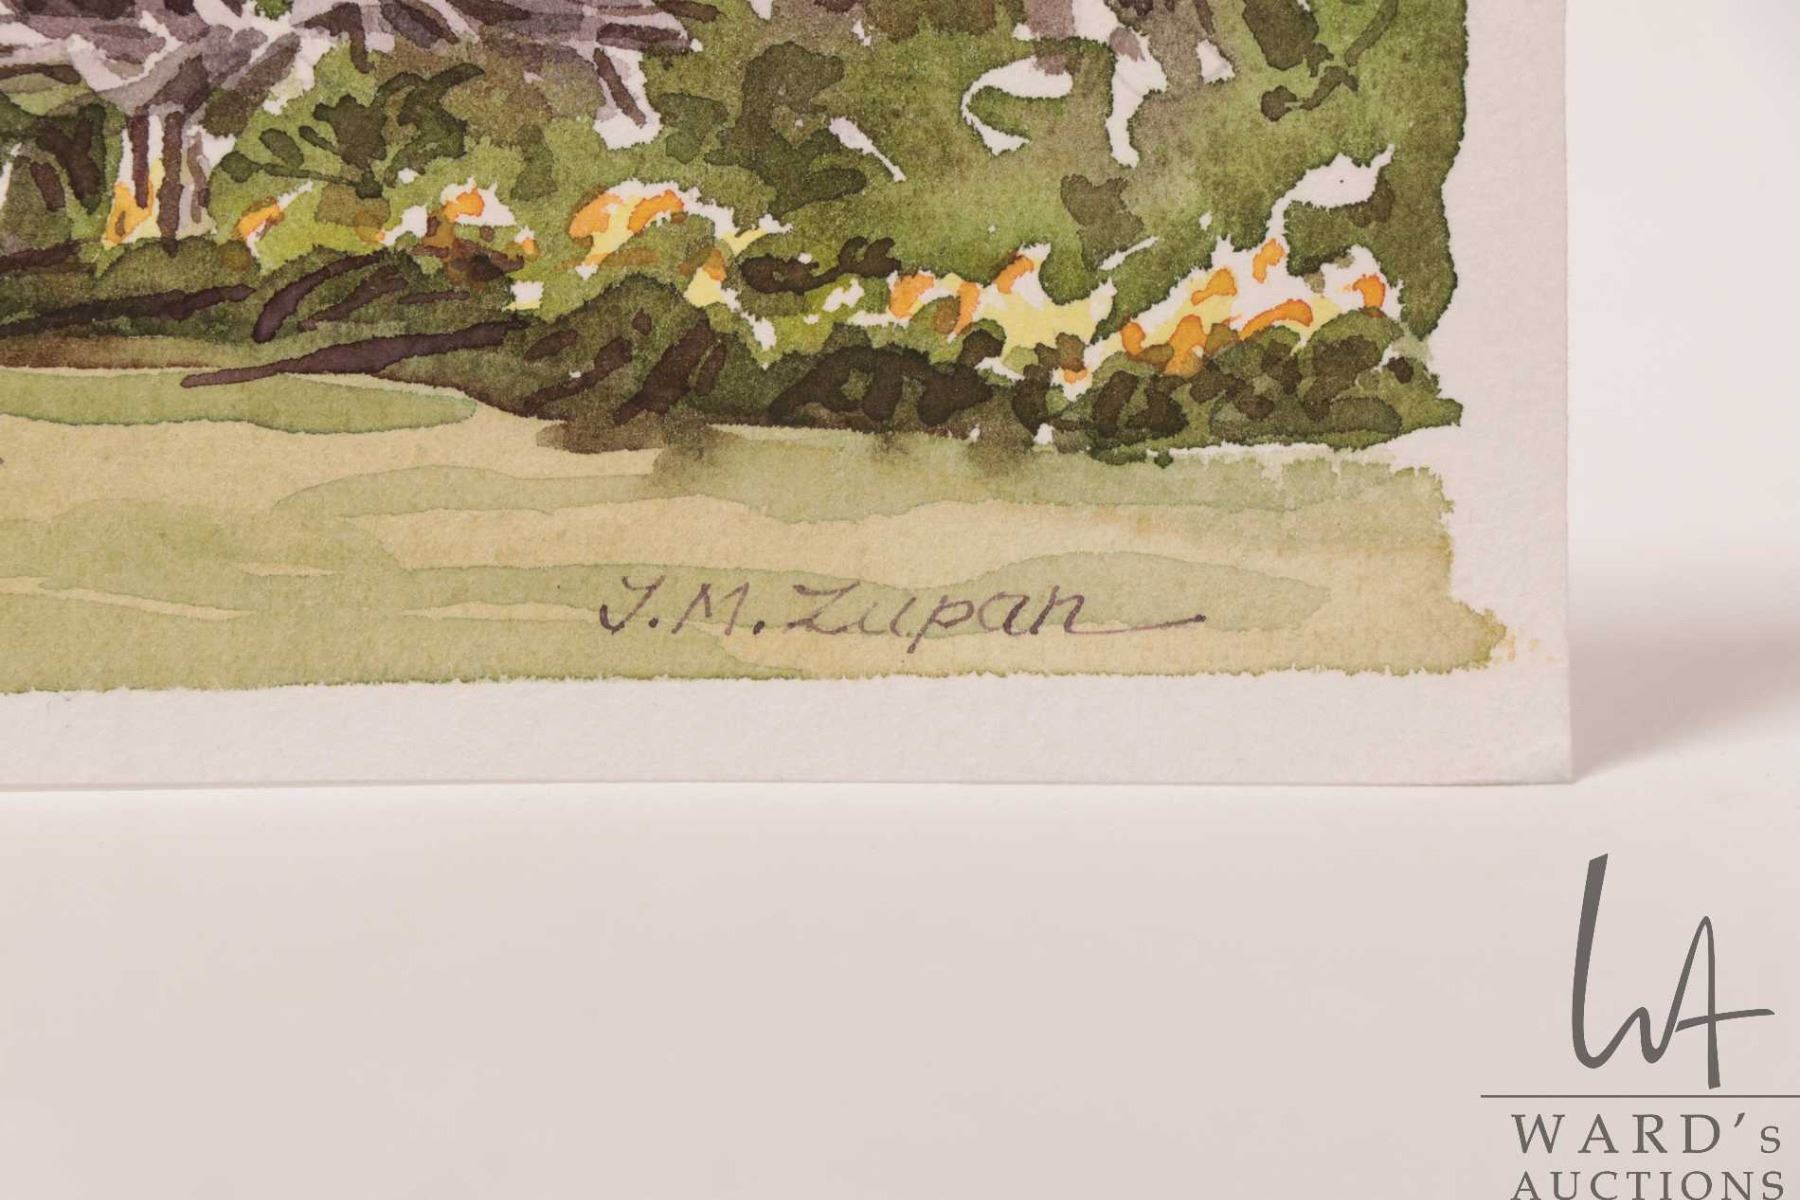 J. M. Zupan
WA
WARD's
AUCTIONS